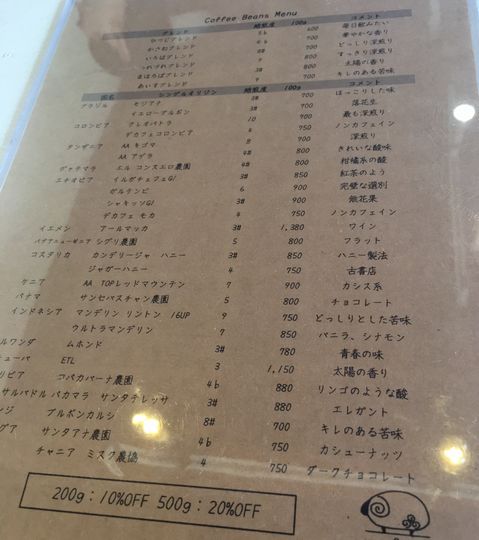 Coffee Beans Menu
ブレンド 焙煎度 100g コメント
ひつじブレンド 5b 600 毎日飲みたい
かさねブレンド 6b 700 華やかな香り
いろはブレンド 700 どっしり深煎り
つれづれブレンド 9 800 すっきり深煎り
まほろばブレンド 3# 800 太陽の香り
あいすブレンド 700 キレのある苦味
国名 シングルオリジン 焙煎度 100g コメント
ブラジル セリアナ 3# 700 ほっこりした味
イエローブルボン 3# 700 落花生
コロンビア クレオパトラ 10 900 最も深煎り
デカフェコロンビア 6 750 ノンカフェイン
タンザニア AA キゴマ 8 700 深煎り
AA アデラ 4# 800 きれいな酸味
グァテマラ エル コンスエロ農園 4# 800 柑橘系の酸
エチオピア イルガチェフェG1 3# 850 紅茶のよう
ゲルテンビ 6 900 完璧な選別
シャキッソG1 3# 900 無花果
デカフェ モカ 4 750 ノンカフェイン
イエメン アールマッカ 3# 1,380 ワイン
パプアニューギニア シグリ農園 5 800 フラット
コスタリカ カンデリージャ ハニー 3# 850 ハニー製法
ジャガーハニー 4 750 古書店
ケニア AA TOPレッドマウンテン 7 900 カシス系
パナマ サンセバスチャン農園 5 800 チョコレート
インドネシア マンデリン リントン /6UP 9 750 どっしりとした苦味
ウルトラマンデリン 7 850 バニラ、シナモン
ルワンダ ムホンド 3# 780 青春の味
ューバ ETL 3 1,150 太陽の香り
リビア コパカバーナ農園 4b 880 リンゴのような酸
サルバドル パカマラ サンタテレッサ 3# 880 エレガント
ンジ ブルボンカルシ 8# 700 キレのある苦味
グア サンタアナ農園 4b 750 カシューナッツ
チャニア ミスク農協 4 750 ダークチョコレート
200g：10%OFF 500g：20%OFF